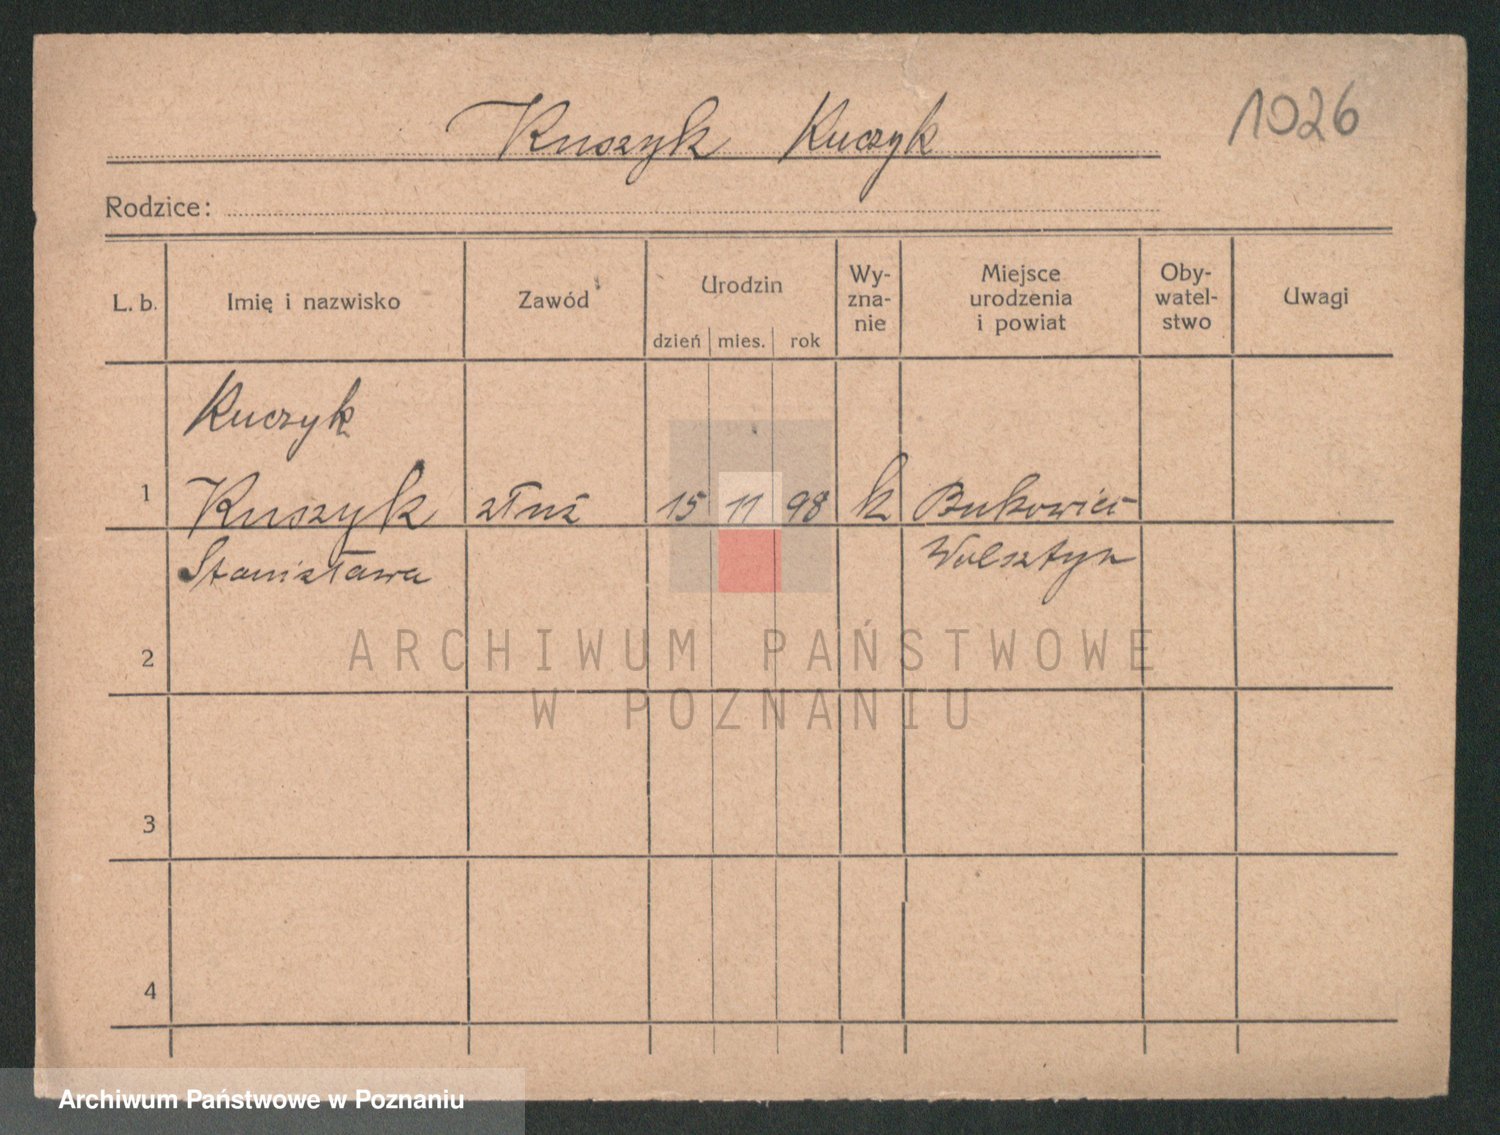 Kuszyk Kuczyk 1026
Rodzice:
L. b. Imię i nazwisko Zawód Urodzin dzień mies. rok Wy-zna-nie Miejsce urodzenia i powiat Oby-watel-stwo Uwagi
Kuczyk
1 Kuszyk służ 15 11 98 k Bukowiec
Stanisława Wolsztyn
2
ARCHIWUM PAŃSTWOWE
W POZNANIU
3
4
Archiwum Państwowe w Poznaniu